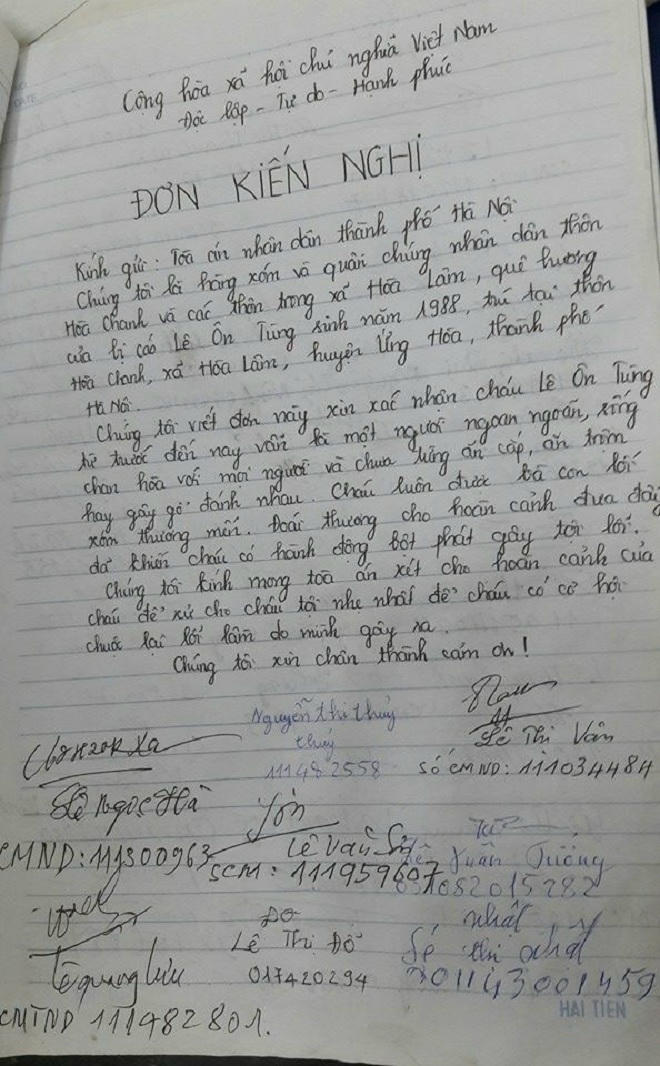 Cộng hòa xã hội chủ nghĩa Việt Nam
Độc lập - Tự do - Hạnh phúc
ĐƠN KIẾN NGHỊ
Kính gửi: Tòa án nhân dân thành phố Hà Nội
Chúng tôi là hàng xóm và quần chúng nhân dân thôn
Hòa Chanh và các thôn trong xã Hòa Lâm, quê hương
của bị cáo Lê Ôn Tùng sinh năm 1988, trú tại thôn
Hòa Chanh, xã Hòa Lâm, huyện Ứng Hòa, thành phố
Hà Nội.
Chúng tôi viết đơn này xin xác nhận cháu Lê Ôn Tùng
từ trước đến nay vẫn là một người ngoan ngoãn, sống
chan hòa với mọi người và chưa từng ăn cắp, ăn trộm
hay gây gổ đánh nhau. Cháu luôn được bà con lối
xóm thương mến. Đoái thương cho hoàn cảnh đưa đẩy
đã khiến cháu có hành động bột phát gây tội lỗi.
Chúng tôi kính mong tòa án xét cho hoàn cảnh của
cháu để xử cho cháu tội nhẹ nhất để cháu có cơ hội
chuộc lại lỗi lầm do mình gây ra.
Chúng tôi xin chân thành cám ơn!
Nguyễn thị thuý
thuý
111482558
Lê Thị Vân
Số CMND: 111034484
Lê Ngọc Hà
CMND: 111300963
Lê Văn
SCM: 111959607
Lê Xuân Tưởng
031082015282
Lê quang lưu
CMTND 111482801.
Đỗ
Lê Thị Đỗ
017420294
nhật
Lê thị nhật
001143001459
HAI TIEN